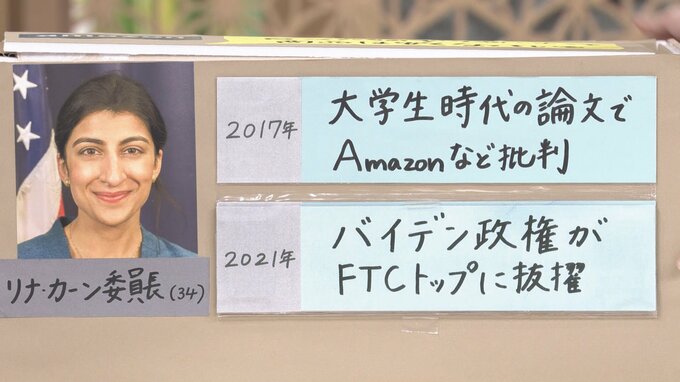 2017年
大学生時代の論文で
Amazonなど批判
2021年
バイデン政権が
FTCトップに抜擢
リナ・カーン委員長(34)